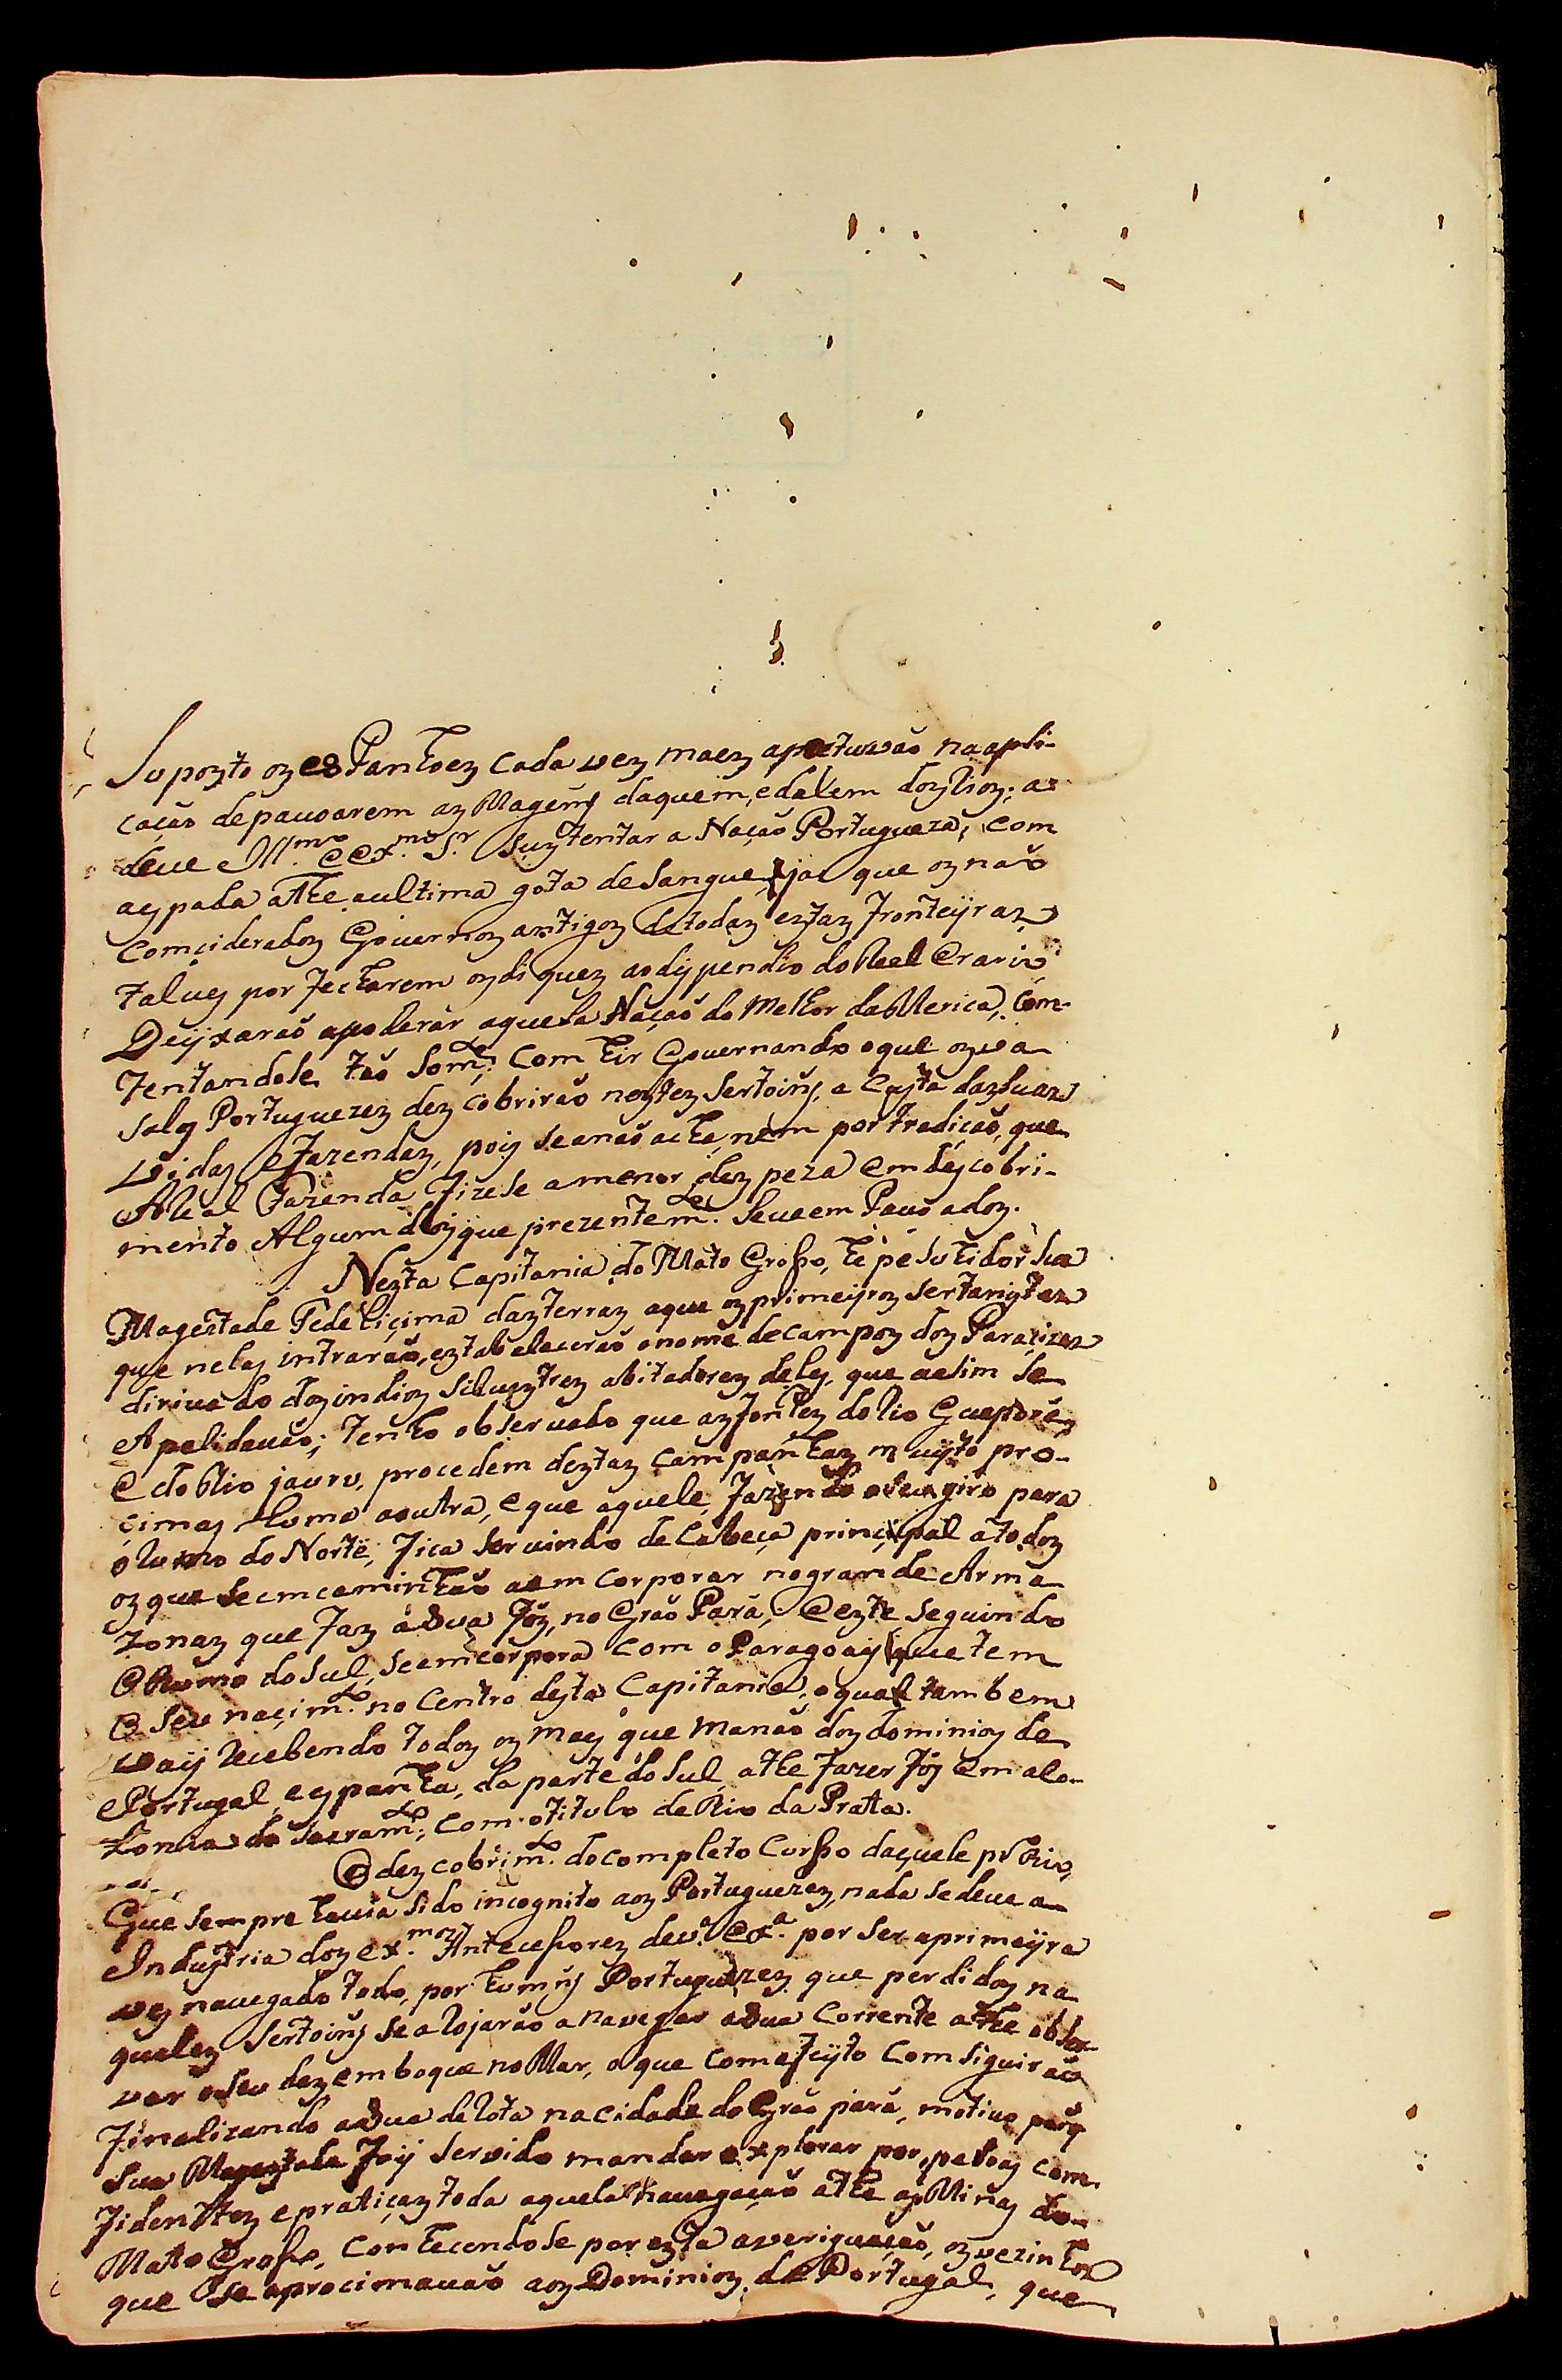 Supozto oz esPanhoez cada vez maez apretuvão na apli-
cação depauoarem az Magenz daquem, edalem doz Rioz; a
deue Ill.mo e Ex.mo S.r Suztentar a Nação Portugueza, com
aezpada athe aultima gota desangue, ja que oz não
comciderados Gouernoz antigoz detodaz eztaz fronteyraz
talvez por fecharem oz diquez aodizpendio do Real Erario
Deyxarão apoderár aquela Nação do Melhor da Merica, Com-
tentandose tão som.te Com hir Gouernando oque oz va-
salos Portuguezez dezcobrirão neztez Sertoinz, a Cuzta dazsuaz
Vidaz, e fazendaz, poiz senão acha, nem por tradição, que
A Real Fazenda fizese amenor dezpeza em dezcobri-
mento Algum doz que prezentem.te Seueem Pauoadoz.
Nezta Capitania do Mato Groso, hé pesuhidor Sua
Magestade Fedelicima dazterraz aque oz primeyroz Sertanyztaz
que nelaz intrarão, eztabalecerão onome decampoz doz Parazizez
diriuado doz indioz Silueztrez abitadorez delez, que aesim se
Apelidauão; tenho obseruado que azfontez do Rio Guaporé,
e do Rio jauru, procedem deztaz campanhaz muyto pro-
cimaz huma aoutra, e que aquele, fazendo oseu giro para
o Rumo do Norte, fica seruindo de Cabeça principal atodoz
oz que se emcaminhão aem corporar nogrande Arma-
zonaz que faz aSua fóz, no Grão Pará; e ezte seguindo
O Rumo do Sul, se emcorpora com o Paragoay que tem
O Seu nacim.to no Centro desta Capitania, oqual tambem
vay Recebendo todoz oz maiz que manão doz dominioz de
Portugal, e ezpanha, da parte do Sul, athe fazer fóz em aCo-
lonia do Sacram.to, com otitulo de Rio da Prata.
O dezcobrim.to docompleto Curso daquele pr.o Rio,
Que sempre hauia Sido incognito aoz Portuguezez, nada sedeue a
Induztria doz Ex.moz Antecesorez de V.a Ex.a por ser aprimeyra
vez nauegado todo, por hunz Portuguezez que perdidoz na
quelez Sertoinz se alojarão anavegar aSua Corrente athe obser-
var oseu dezemboque no Mar, oque com efeyto Comsiguirão
finalizando aSua deRota nacidade do Grão pará, motiuo para q
Sua Magestade foy Servido mandar explorar por, pesoaz com-
fidentez e praticaz toda aquela nauegação athe az Minaz do
Mato Groso, Conhecendose por ezta averiguação, oz vezinhoz
que se aprocimauão aoz Dominioz de Portugal, que